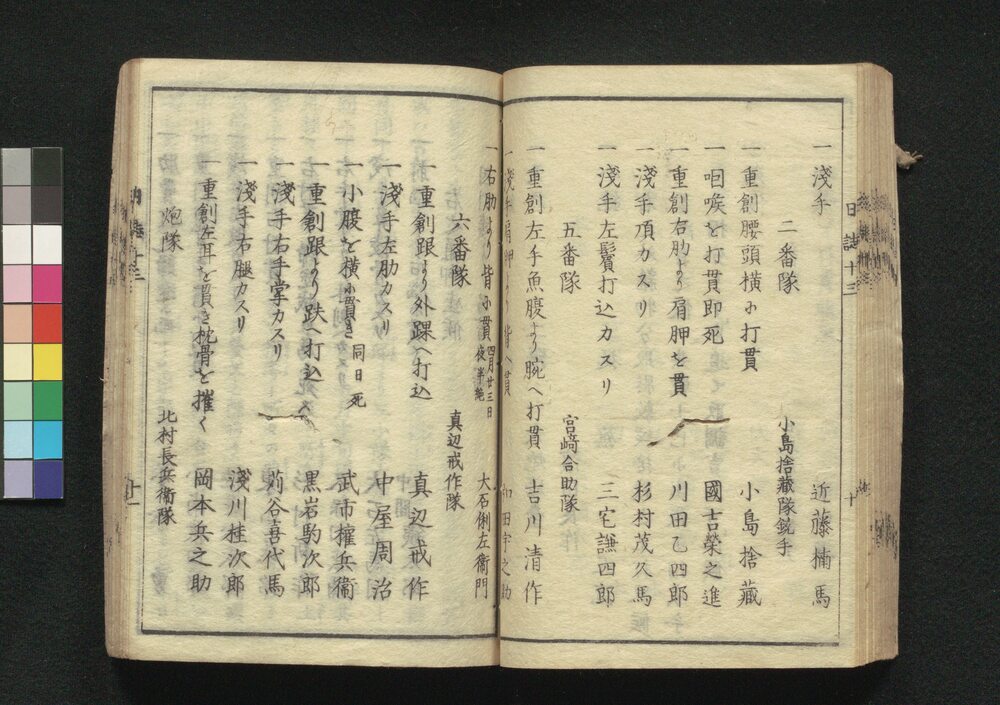 一淺手 近藤楠馬
二番隊 小島捨藏隊銃手
一重創腰頭横ニ打貫 小島捨藏
一咽喉を打貫即死 國吉榮之進
一重創右肋より肩胛を貫 川田乙四郎
一淺手頂カスリ 杉村茂久馬
一淺手左鬢打込カスリ 三宅謙四郎
五番隊 宮﨑合助隊
一重創左手魚腹より腕へ打貫 吉川清作
一淺手肩胛より背へ貫 田宇之助
一右肋より背ニ貫 四月廿三日夜半絶 大石俐左衞門
六番隊 真辺戒作隊
一重創跟より外踝へ打込 真辺戒作
一淺手左肋カスリ 中屋周治
一小腹を横ニ貫き 同日死 武市権兵衞
一重創跟より趺へ打込 黒岩駒次郎
一淺手右手掌カスリ 苅谷喜代馬
一淺手右腿カスリ 淺川桂次郎
一重創左耳を貫き枕骨を摧く 岡本兵之助
炮隊 北村長兵衞隊
日誌十三 十
十一